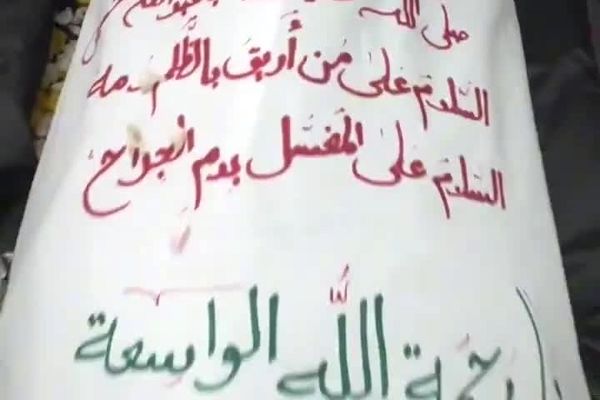 صلى الله
السلام على من أريق بالظلم دمه
السلام على المغسل بدم الجراح
يا رحمة الله الواسعة